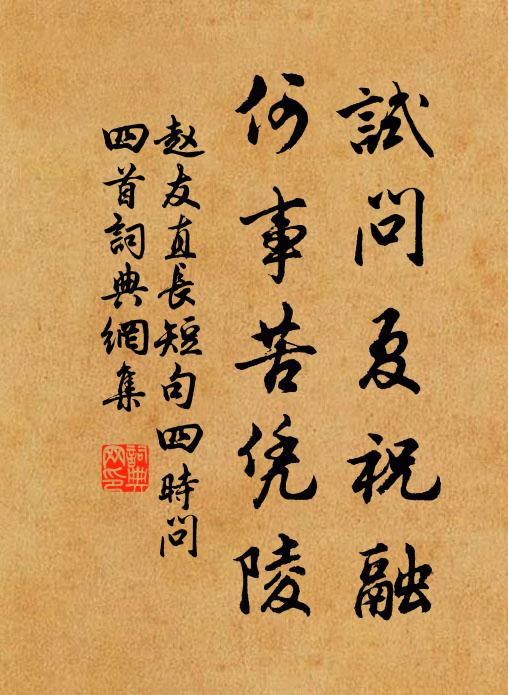 試问夏祝融
何事苦凭陵
赵友直長短句四時问
四首詞典網集
詞典
网印